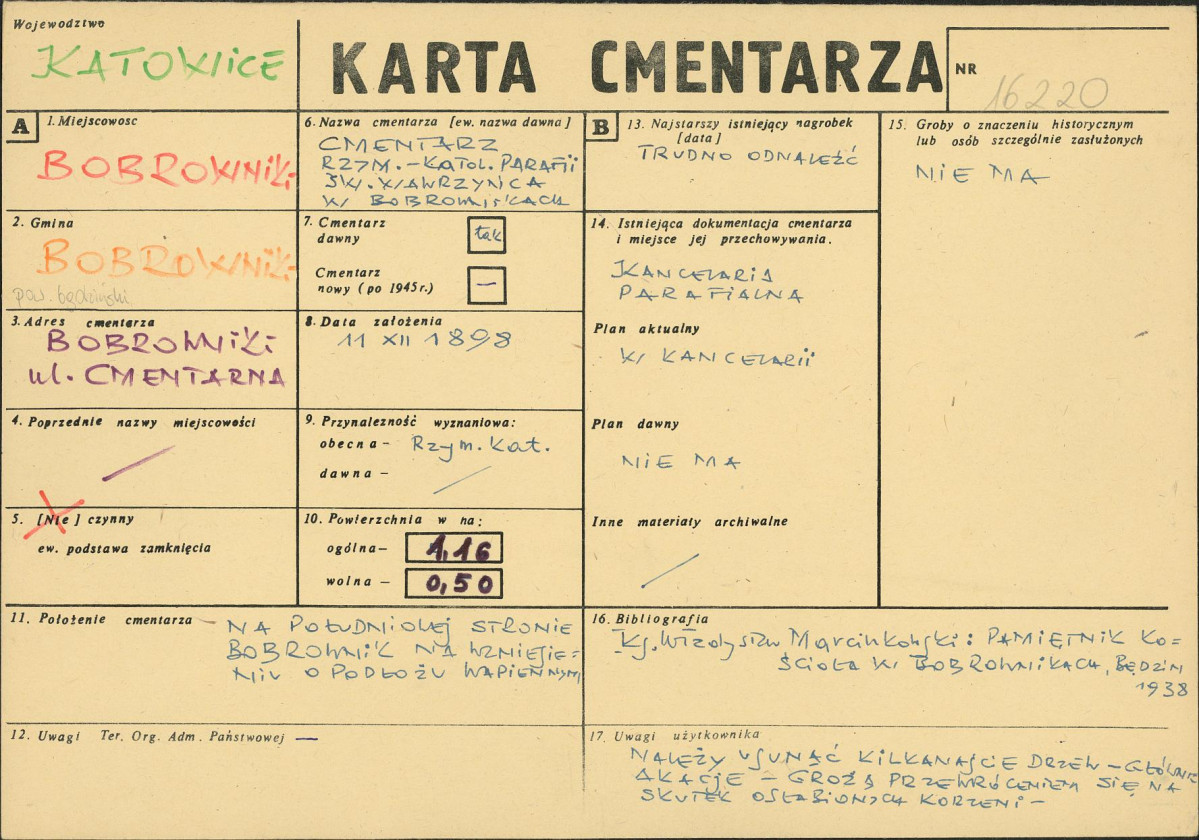 Wojewodztwo
KATOWICE
KARTA CMENTARZA
NR
16220
A
1. Miejscowosc
BOBROWNIKI
2. Gmina
BOBROWNIKI
pow. będziński
3. Adres cmentarza
BOBROWNIKI
ul. CMENTARNA
4. Poprzednie nazwy miejscowości
5. [Nie] czynny
ew. podstawa zamknięcia
6. Nazwa cmentarza [ew. nazwa dawna]
CMENTARZ
RZYM.-KATOL. PARAFII
ŚW. WAWRZYŃCA
W BOBROWNIKACH
7. Cmentarz
dawny
tak
Cmentarz
nowy (po 1945 r.)
—
8. Data założenia
11 XII 1898
9. Przynależność wyznaniowa:
obecna – Rzym. Kat.
dawna –
10. Powierzchnia w ha:
ogólna – 1,16
wolna – 0,50
B
13. Najstarszy istniejący nagrobek
[data]
TRUDNO ODNALEŹĆ
14. Istniejąca dokumentacja cmentarza
i miejsce jej przechowywania.
KANCELARIA
PARAFIALNA
Plan aktualny
W KANCELARII
Plan dawny
NIE MA
Inne materiały archiwalne
15. Groby o znaczeniu historycznym
lub osób szczególnie zasłużonych
NIE MA
11. Położenie cmentarza
NA POŁUDNIOWEJ STRONIE
BOBROWNIK NA WZNIESIE=
NIU O PODŁOŻU WAPIENNYM
12. Uwagi Ter. Org. Adm. Państwowej —
16. Bibliografia
Ks. Władysław Marcinkowski: PAMIĘTNIK KO=
ŚCIOŁA W BOBROWNIKACH, BĘDZIN
1938
17. Uwagi użytkownika
NALEŻY USUNĄĆ KILKANAŚCIE DRZEW – GŁÓWNIE
AKACJE – GROŻĄ PRZEWRÓCENIEM SIĘ NA
SKUTEK OSŁABIONYCH KORZENI –